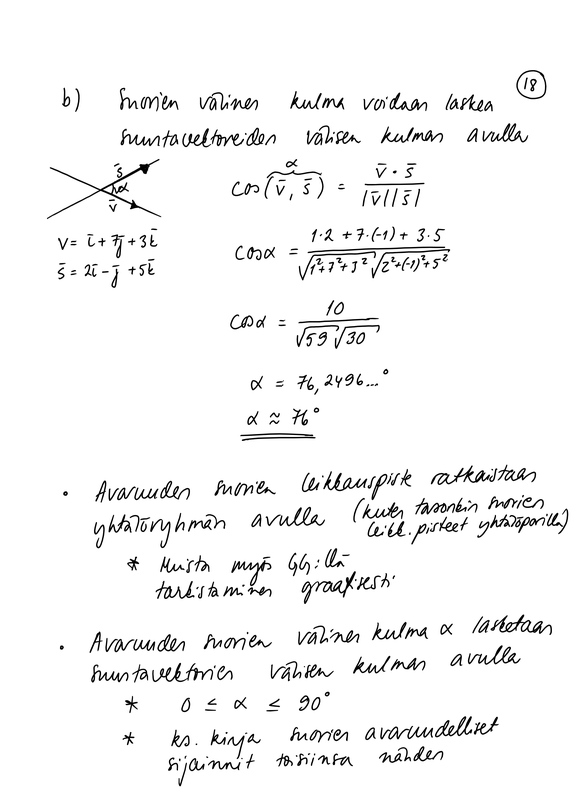 18
b) Suorien välinen kulma voidaan laskea
suuntavektoreiden välisen kulman avulla
s̄
α
v̄
v = ī + 7j̄ + 3k̄
s̄ = 2ī - j̄ + 5k̄
α
cos(v̄, s̄) = v̄ · s̄ / |v̄||s̄|
cosα = 1·2 + 7·(-1) + 3·5 / √1²+7²+3² √2²+(-1)²+5²
cosα = 10 / √59 √30
α = 76,2496...°
α ≈ 76°
• Avaruuden suorien leikkauspiste ratkaistaan
yhtälöryhmän avulla (kuten tasonkin suorien
leikk.pisteet yhtälöparilla)
* Muista myös GG:llä
tarkistaminen graafisesti
• Avaruuden suorien välinen kulma α lasketaan
suuntavektorien välisen kulman avulla
* 0 ≤ α ≤ 90°
* ks. kirja suorien avaruudelliset
sijainnit toisiinsa nähden